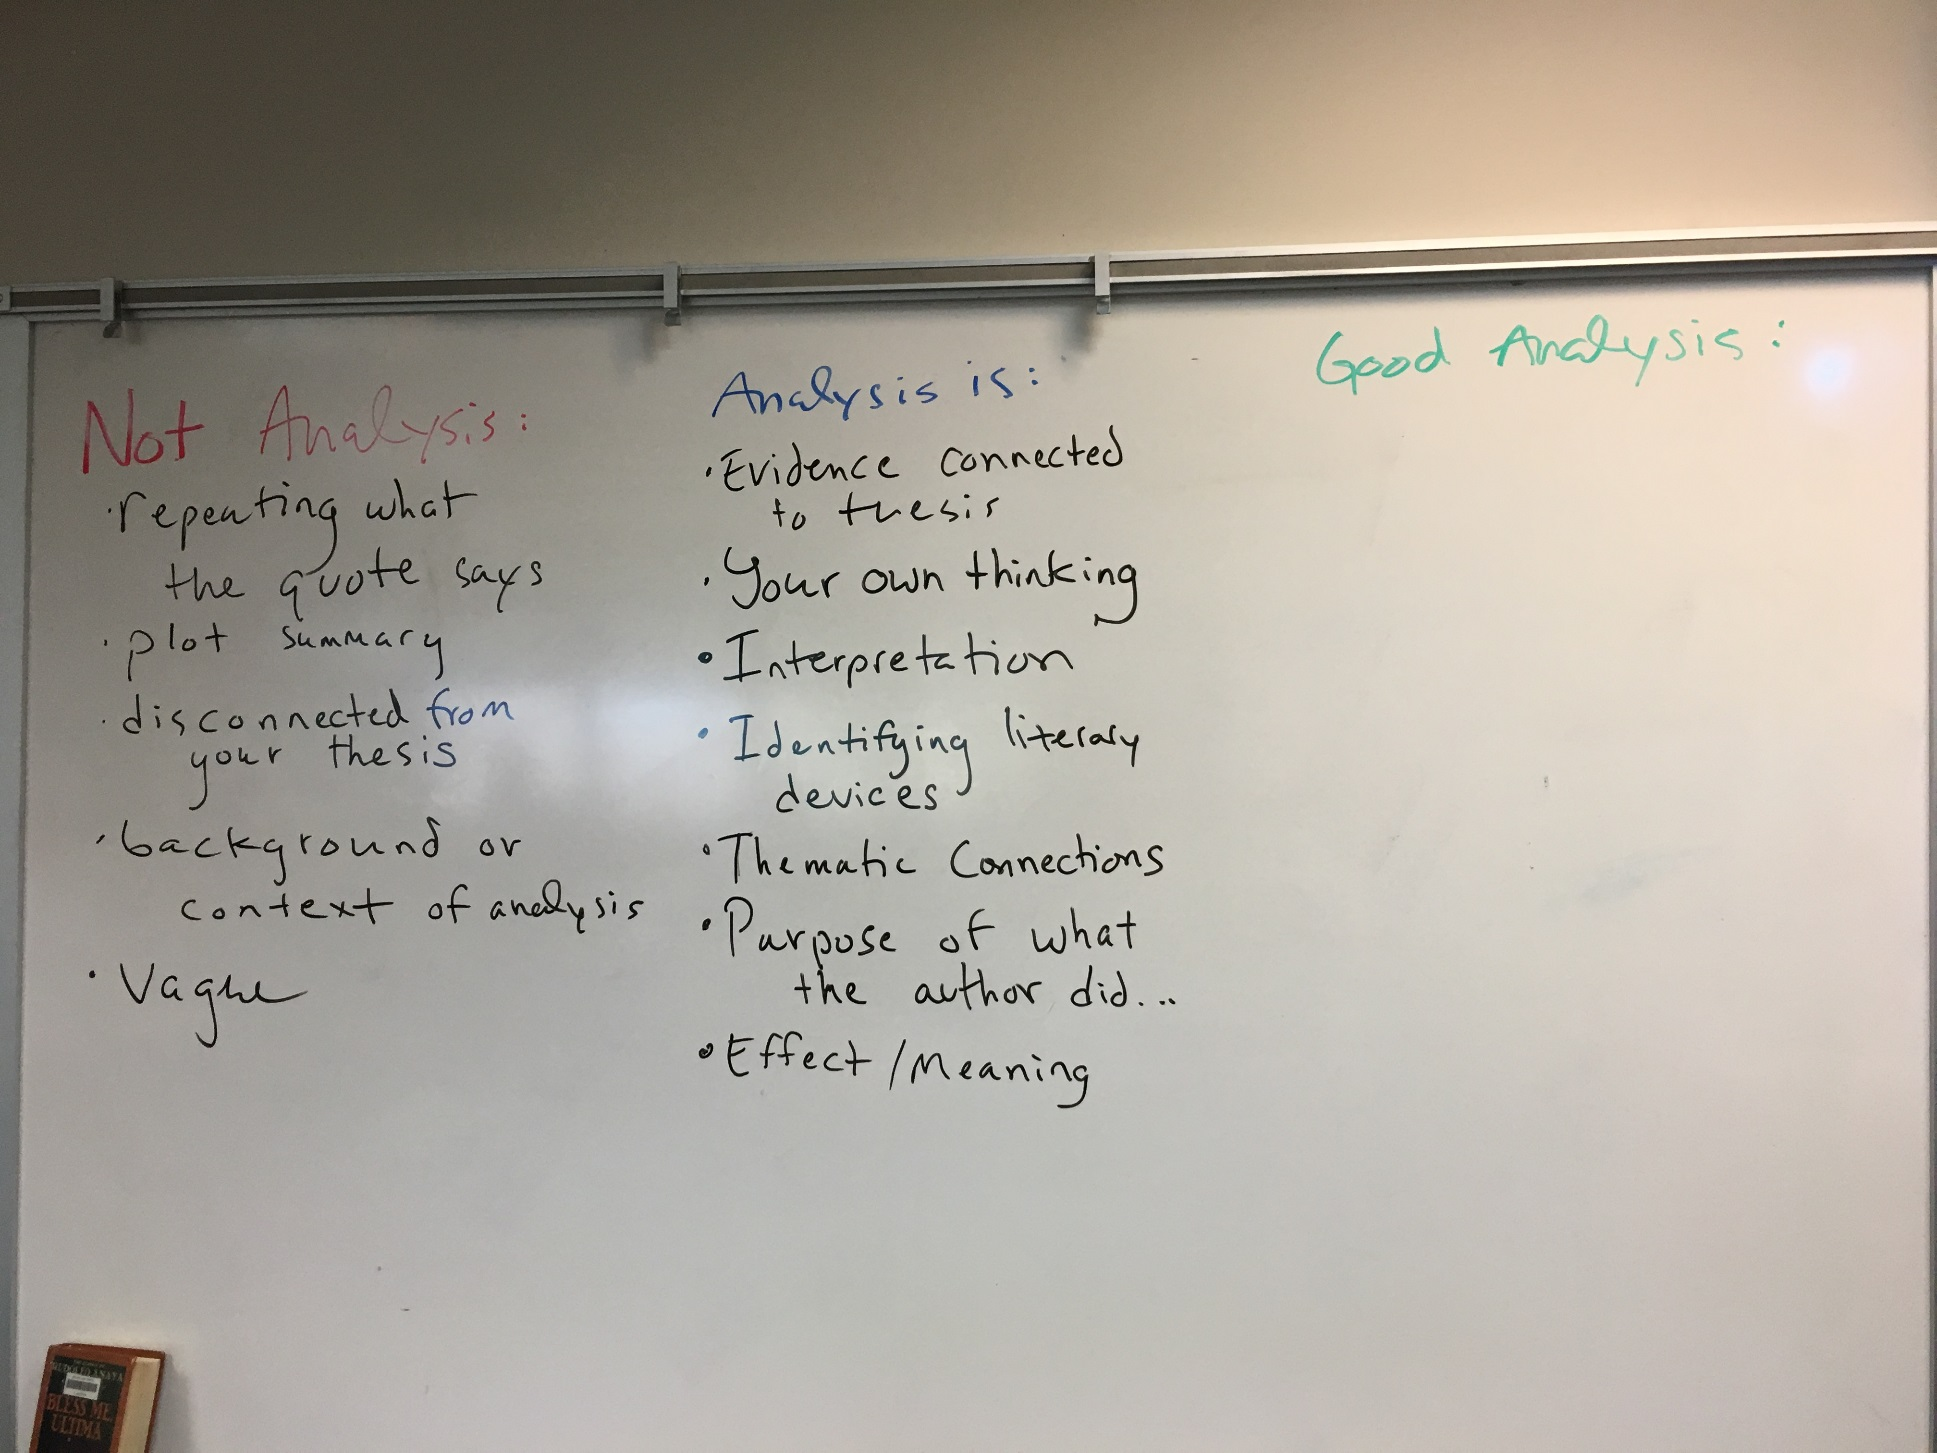 Not Analysis:
· repeating what
the quote says
· plot summary
· disconnected from
your thesis
· background or
context of analysis
· Vague
Analysis is:
· Evidence connected
to thesis
· Your own thinking
· Interpretation
· Identifying literary
devices
· Thematic Connections
· Purpose of what
the author did...
· Effect/Meaning
Good Analysis:
RUDOLFO ANAYA
BLESS ME,
ULTIMA